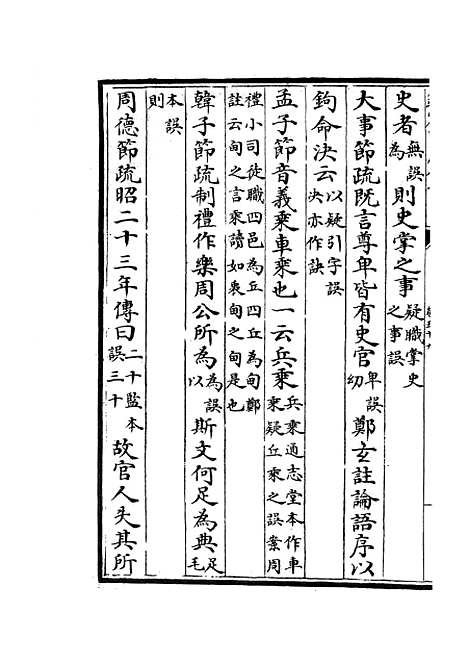 史者無誤為則史掌之事疑職掌史之事誤
大事節疏既言尊卑皆有史官卑誤幼鄭玄註論語序以
鉤命決云以疑引字誤决亦作訣
孟子節音義乗車乗也一云兵乗兵乗通志堂本作車乗疑丘乗之誤案周
禮小司徒職四邑為丘四丘為甸鄭註云甸之言乗讀如衷甸之甸是也
韓子節疏制禮作樂周公所為為誤以斯文何足為典足毛
本誤則
周德節疏昭二十三年傳曰二十監本誤三十故官人失其所